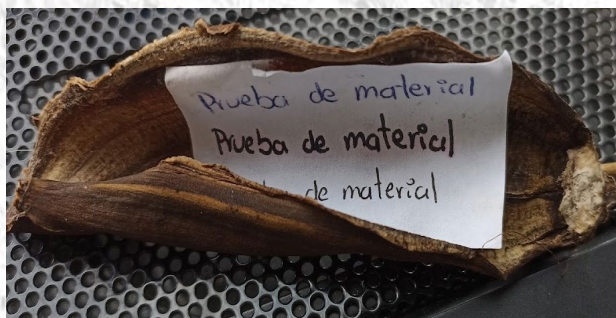 Prueba de material
Prueba de material
de material